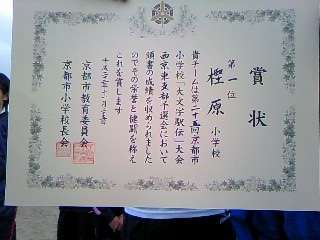 賞状
第一位
樫原小学校
貴チームは第二十五回京都市
小学校「大文字駅伝」大会
西京東支部予選会において
頭書の成績を収められました
のでその栄誉と健闘を称え
これを賞します
京都市教育委員会
京都市小学校長会